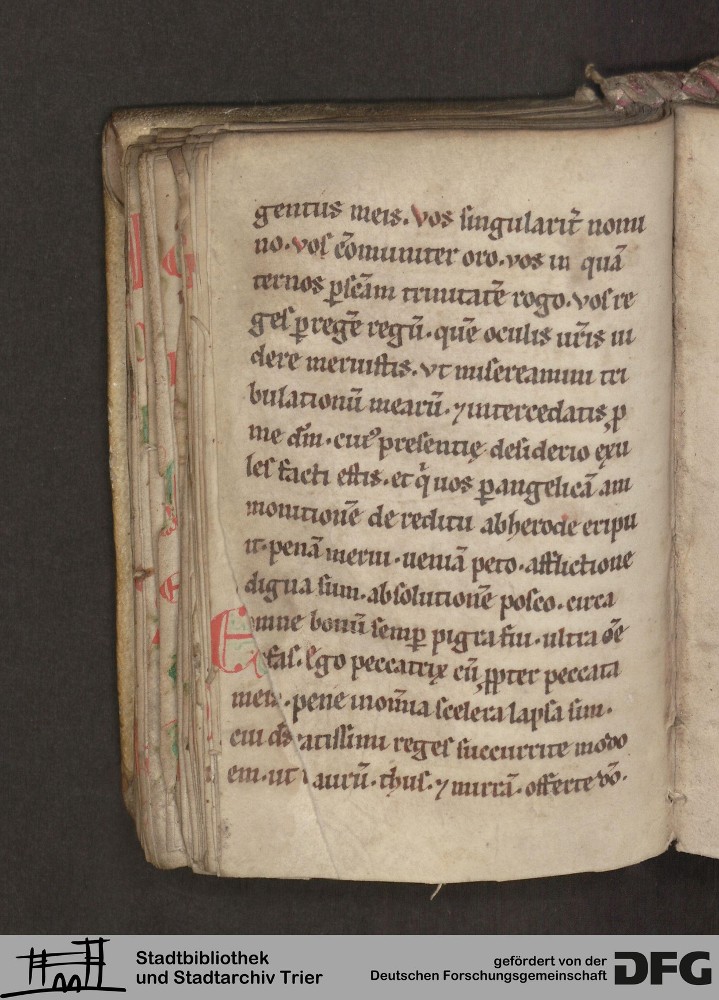 gentus meis. vos singularit̃ nomi
no. vos cõmuniter oro. vos in quã
ternos ꝑsc̃am trinitatẽ rogo. vos re
ges ꝑ regẽ regũ. quẽ oculis ur̃is ui
dere meruistis. vt misereamini tri
bulationũ mearũ. ⁊ intercedatis ꝓ
me dñi. cui᷒ presentię desiderio exu
les facti estis. et q̇ uos ꝑ angelicã am
monitionẽ de reditu ab herode eripu
it. penã merui. ueniã peto. afflictione
digna sum. absolutionẽ posco. circa
omne bonũ semꝑ pigra fui. ultra oẽ
fas. Ego peccatrix cũ ꝓpter peccata
mea. pene inom̃ia scelera lapsa sim.
atissimi reges succurrite modo
em. ut aurũ. thus. ⁊ mirrã. offerte dõ.
Stadtbibliothek
und Stadtarchiv Trier
gefördert von der
Deutschen Forschungsgemeinschaft
DFG